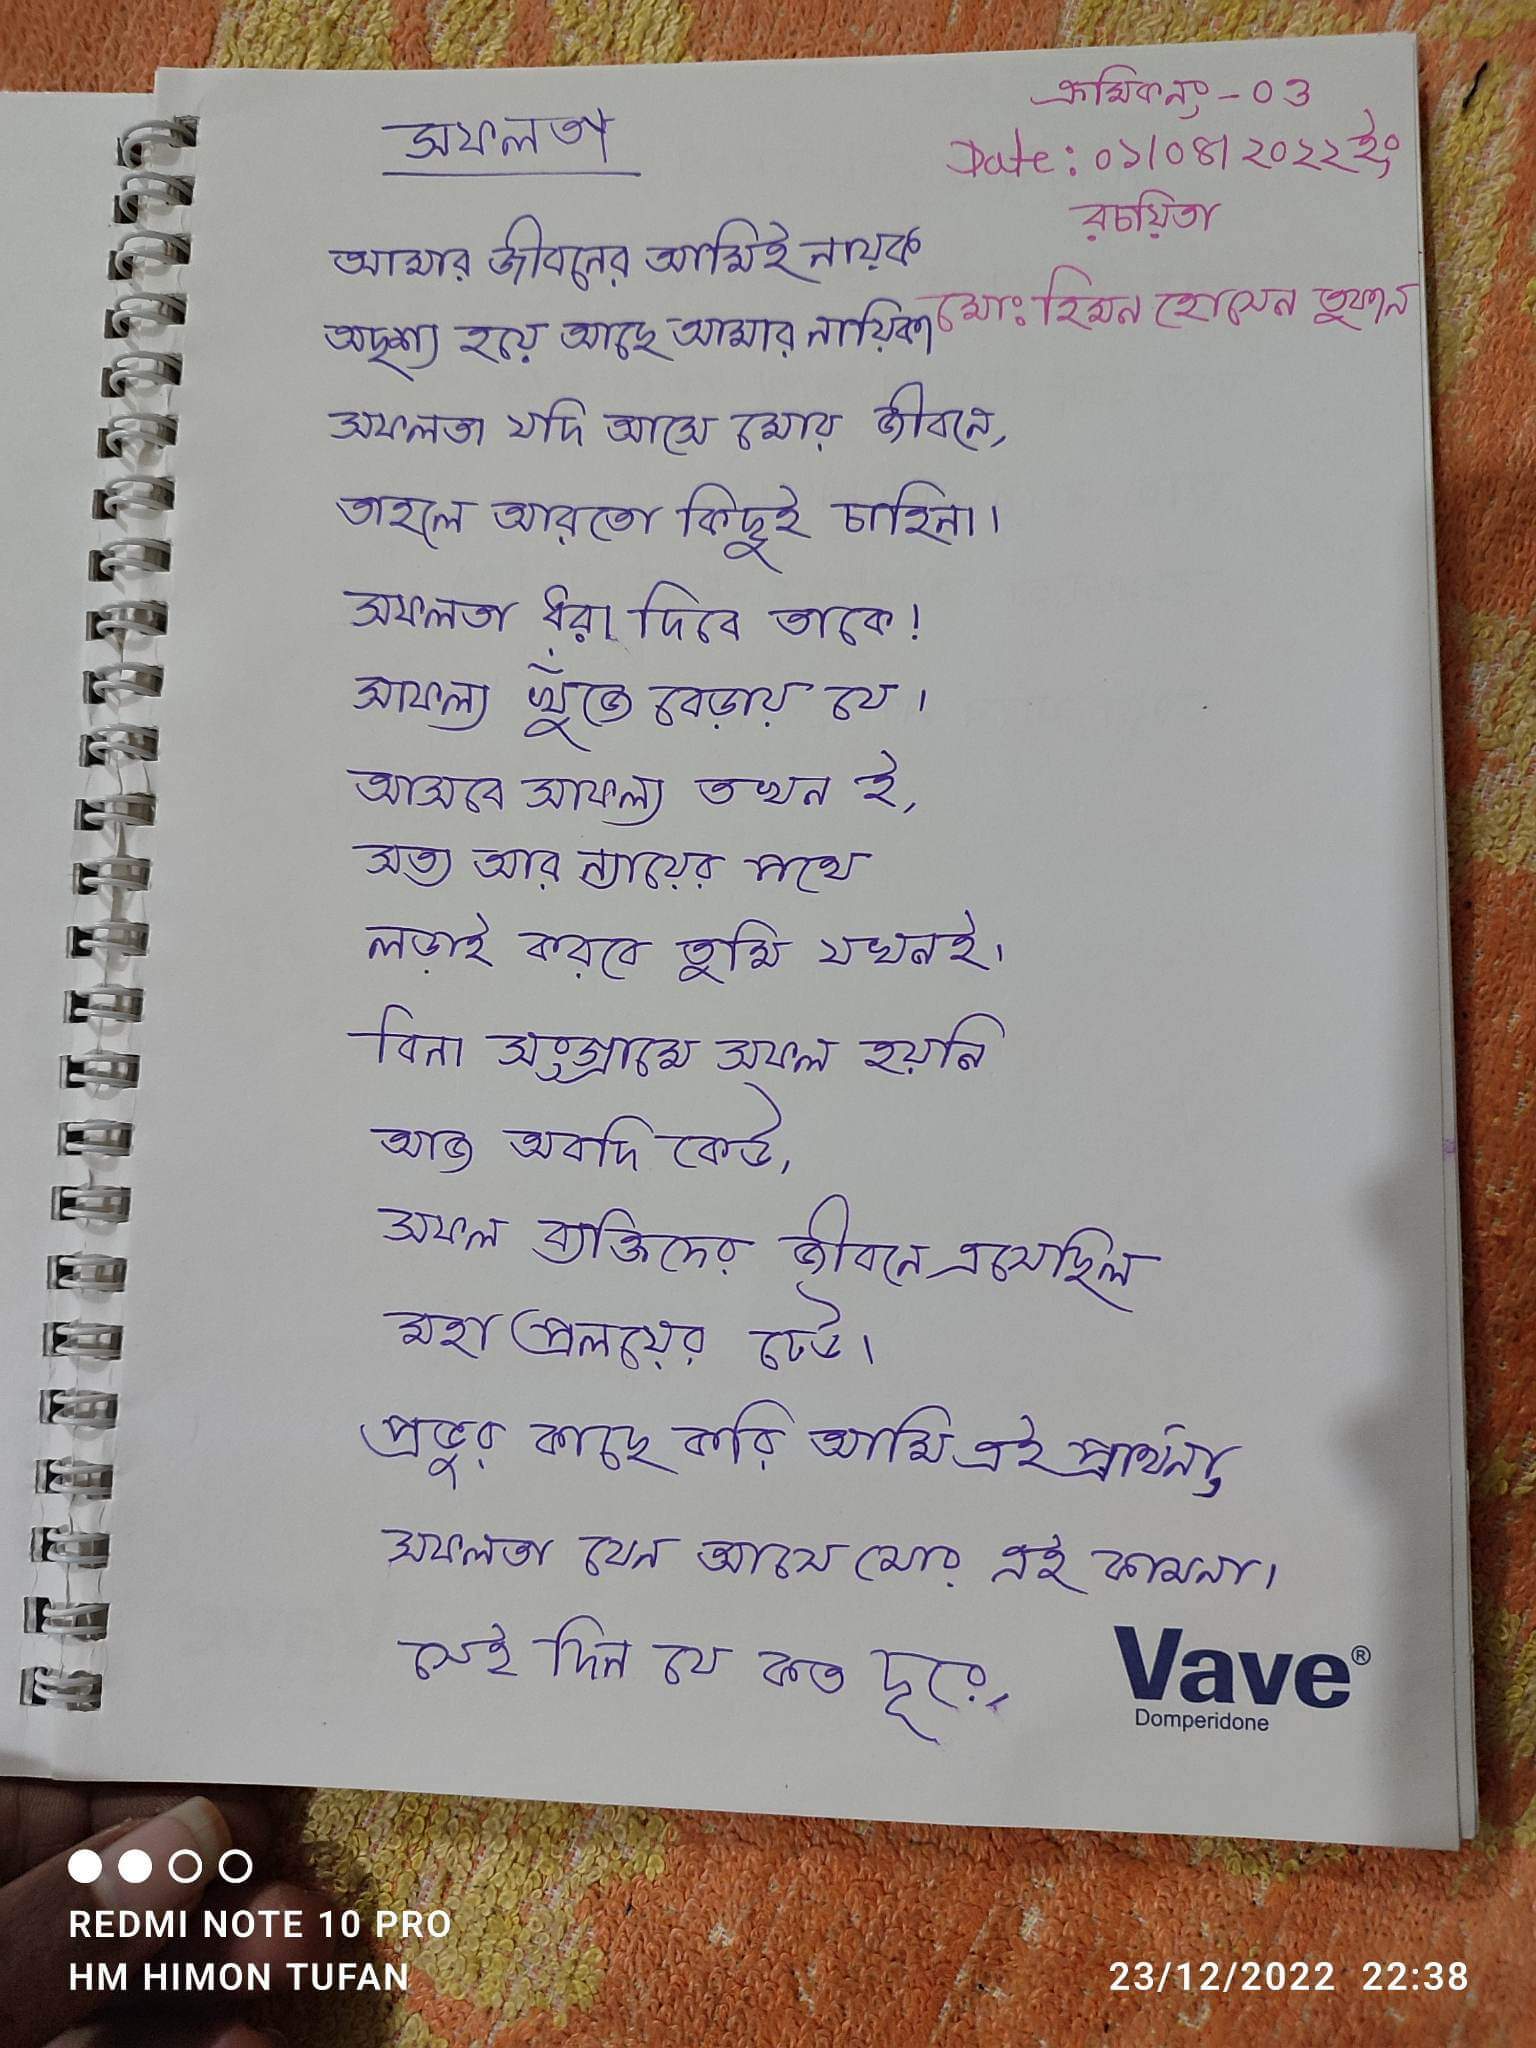 ক্রমিকনং-০৩
সফলতা
Date: ০১/০৪/২০২২ইং
রচয়িতা
আমার জীবনের আমিই নায়ক
মোঃ হিমন হোসেন তুফান
অদৃশ্য হয়ে আছে আমার নায়িকা
সফলতা যদি আসে মোর জীবনে,
তাহলে আরতো কিছুই চাহিনা।
সফলতা ধরা দিবে তাকে!
সাফল্য খুঁজে বেড়ায় যে।
আসবে সাফল্য তখন ই,
সত্য আর ন্যায়ের পথে
লড়াই করবে তুমি যখনই।
বিনা সংগ্রামে সফল হয়নি
আজ অবদি কেউ,
সফল ব্যক্তিদের জীবনে এসেছিল
মহা প্রলয়ের ঢেউ।
প্রভুর কাছে করি আমি এই প্রার্থনা,
সফলতা যেন আসে মোর এই কামনা।
সেই দিন যে কত দূরে,
Vave®
Domperidone
REDMI NOTE 10 PRO
HM HIMON TUFAN
23/12/2022 22:38